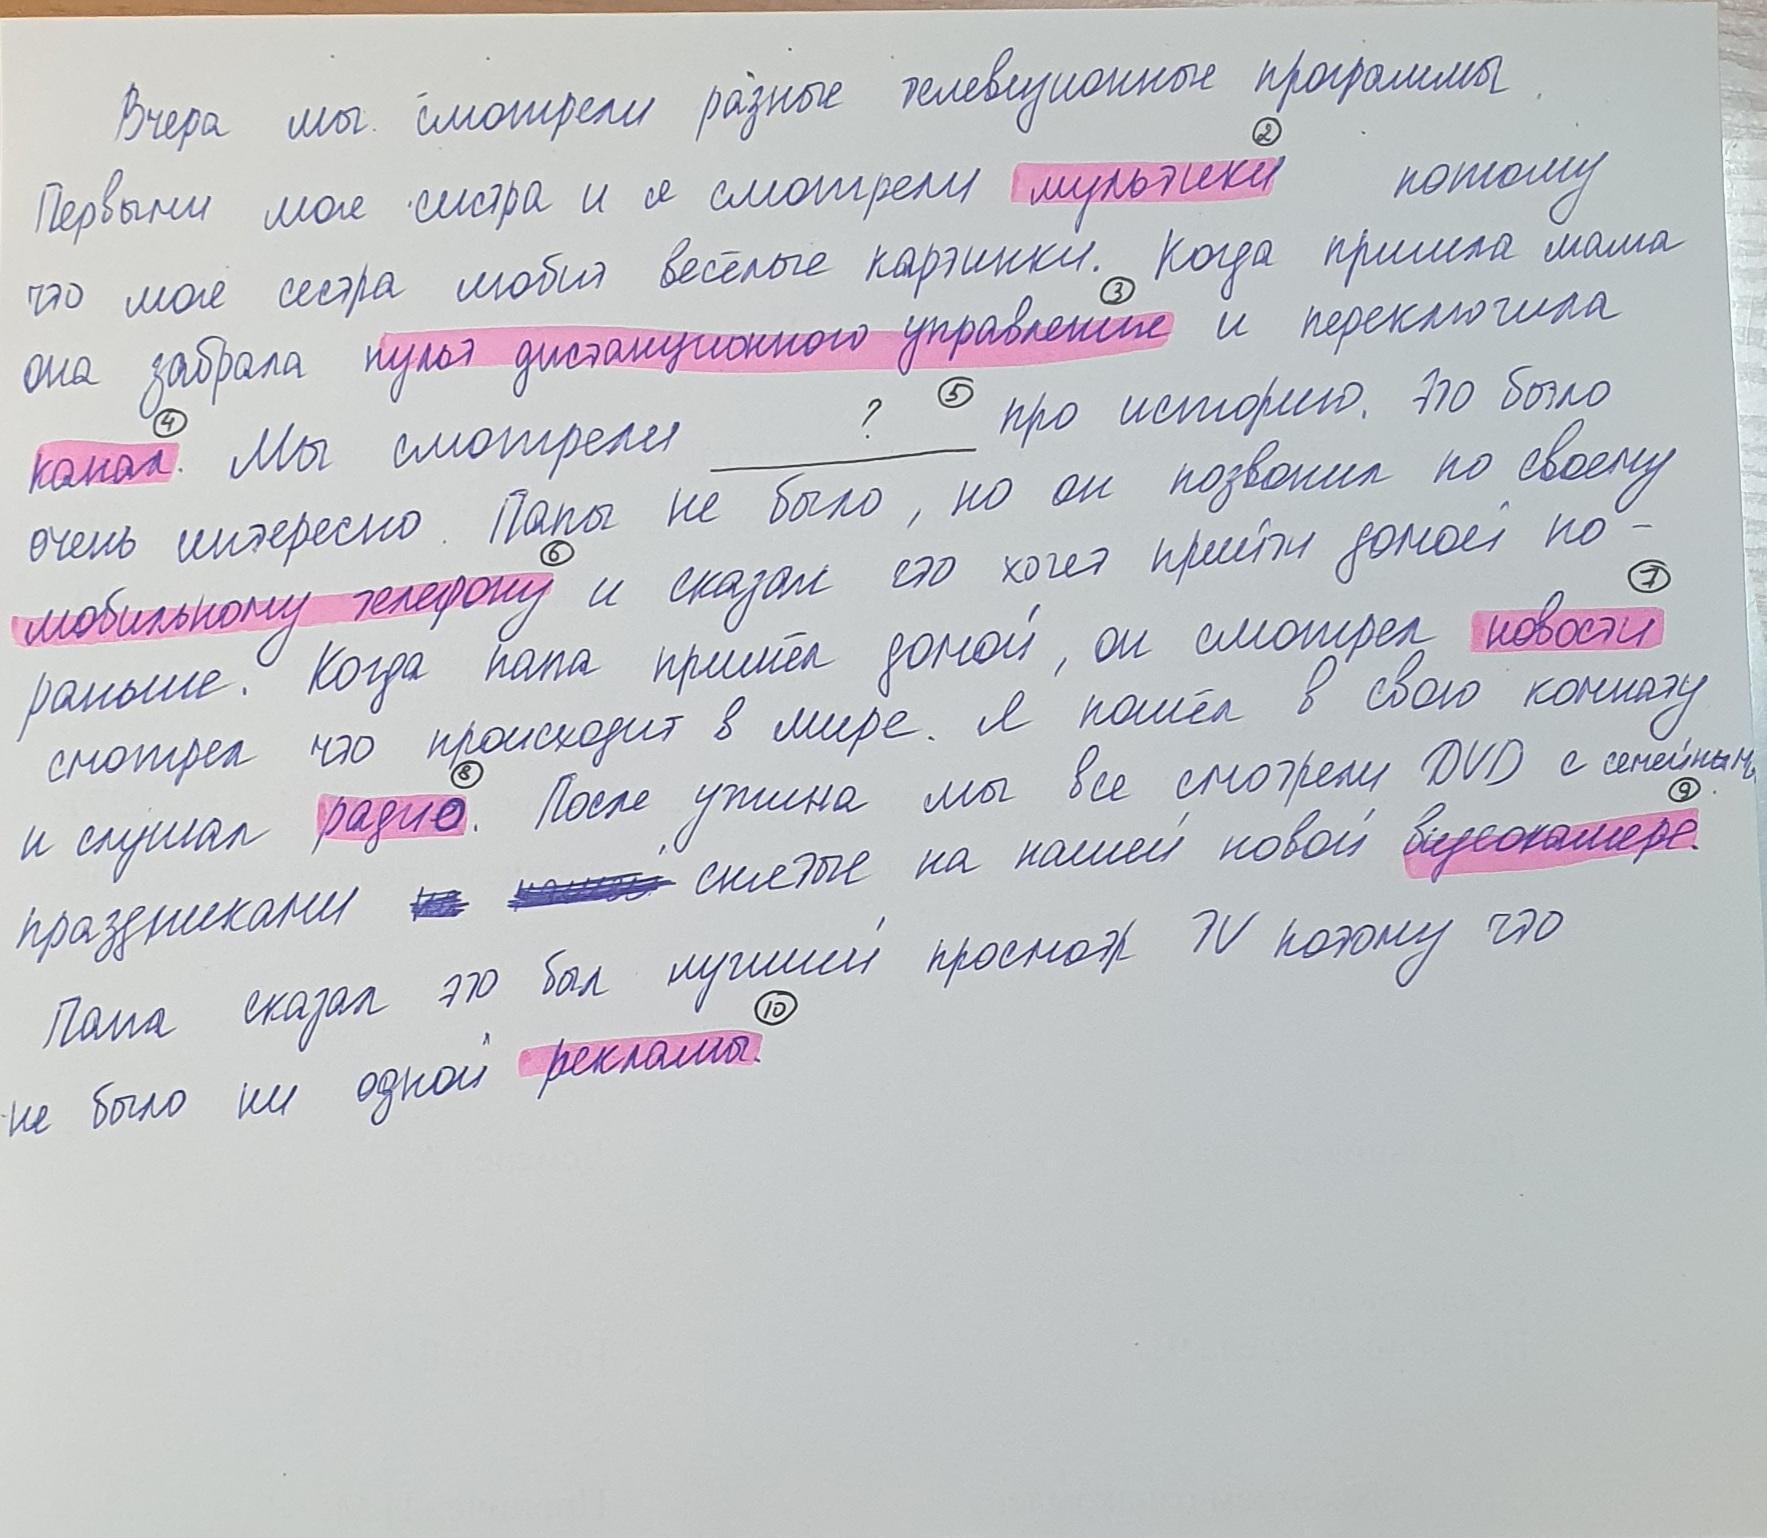 Вчера мы смотрели разные телевизионные программы.
② 
Первыми моя сестра и я смотрели мультики потому
что моя сестра любит весёлые картинки. Когда пришла мама
③
она забрала пульт дистанционного управление и переключила
④ ⑤
канал. Мы смотрели ? про историю. Это было
очень интересно. Папы не было, но он позвонил по своему
⑥
мобильному телефону и сказал что хочет прийти домой по-
⑦
раньше. Когда папа пришёл домой, он смотрел новости
смотрел что происходит в мире. Я пошёл в свою комнату
⑧
и слушал радио. После ужина мы все смотрели DVD с семейным
⑨
праздниками снятые на нашей новой видеокамере.
Папа сказал это был лучший просмотр TV потому что
⑩
не было ни одной рекламы.